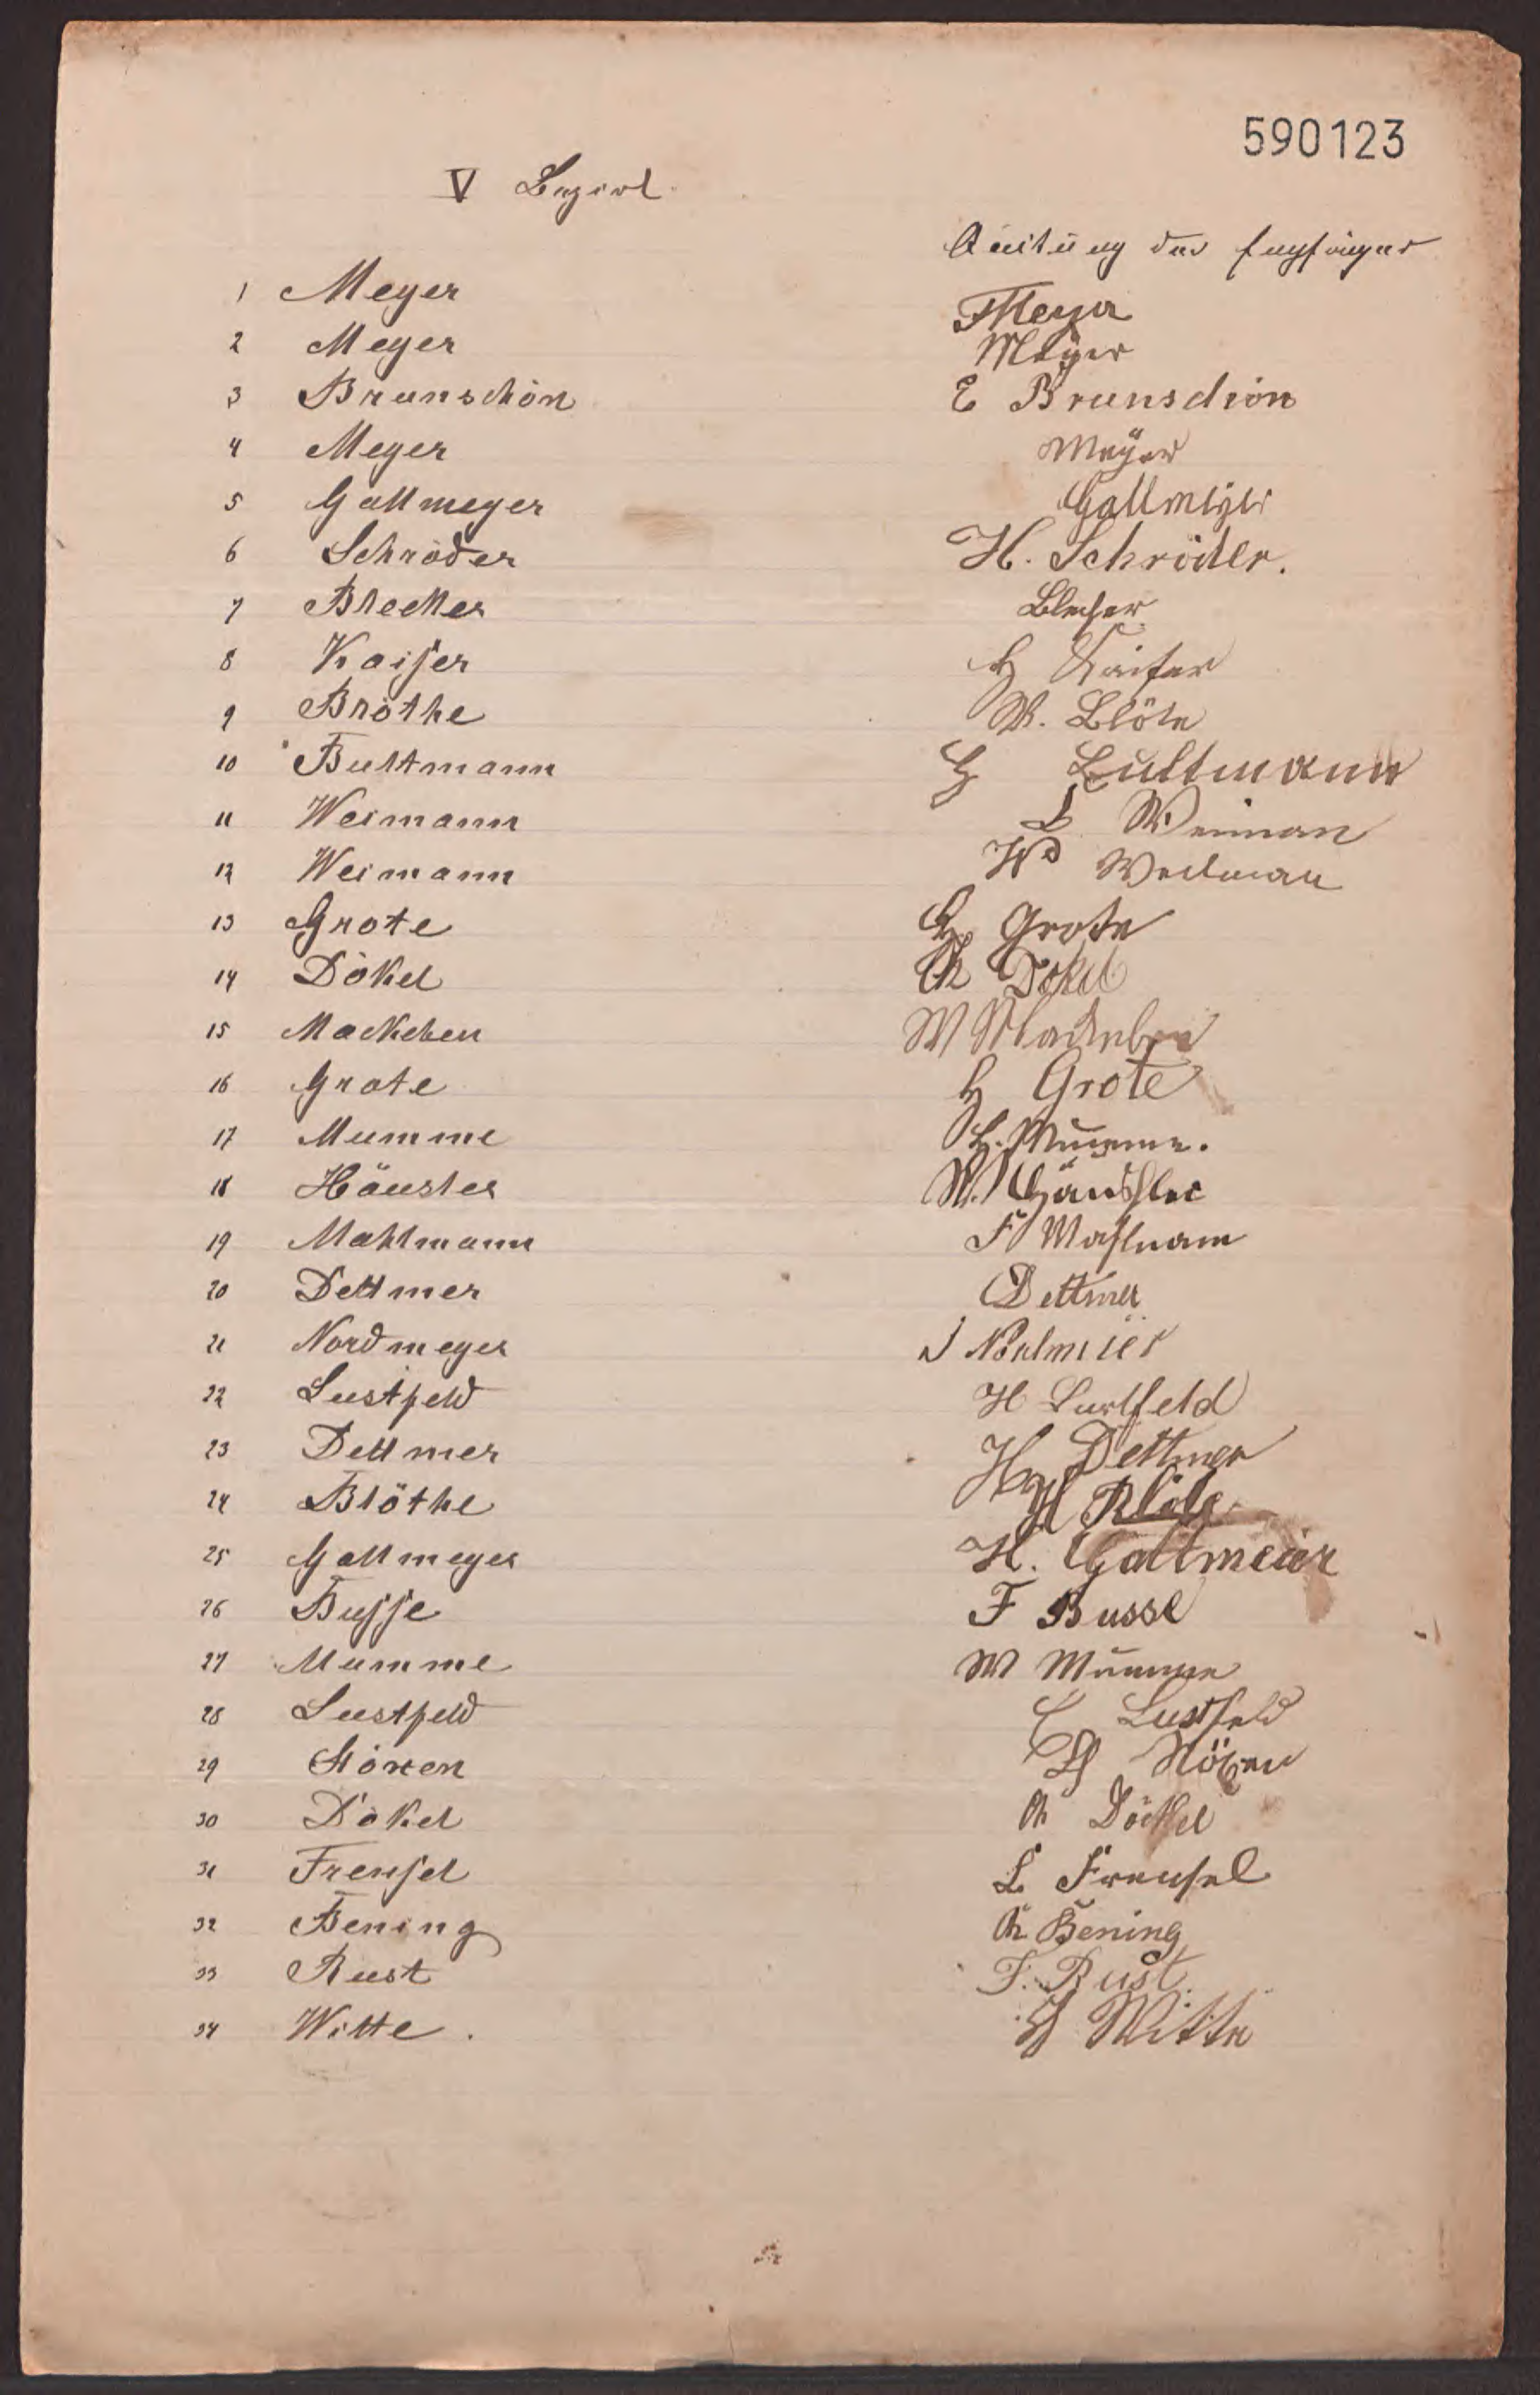 590123
V Bezirk
Quitung des Empfänger
1 Meyer F Meyer
2 Meyer Meyer
3 Brunschön E Brunschön
4 Meyer Meÿer
5 Gallmeyer Gallmeyer
6 Schröder H. Schröder.
7 Blecker Blecker
8 Kaiser H Kaiser
9 Bröthe W. Blöte
10 Bultmann H Bultmann
11 Weimann L Weiman
12 Weimann Weiman
13 Grote H. Grote
14 Dökel Ch Dökel
15 Mackeben W Mackeben
16 Grote H Grote
17 Mumme H. Mumme.
18 Häusler W. Häussler
19 Mahlmann F Mahlmann
20 Dettmer Dettmer
21 Nordmeyer
22 Lustfeld H Lustfeld
23 Dettmer H Dettmer
24 Blöthe H Blöte
25 Gallmeyer H. Gallmeier
26 Busse F Busse
27 Mumme W Mumme
28 Lustfeld C Lustfeld
29 H
30 Dökel Ch Döckel
31 Frensel L Frensel
32 Bening Ch Bening
33 Rust F. Rust.
34 Witte. H Witte